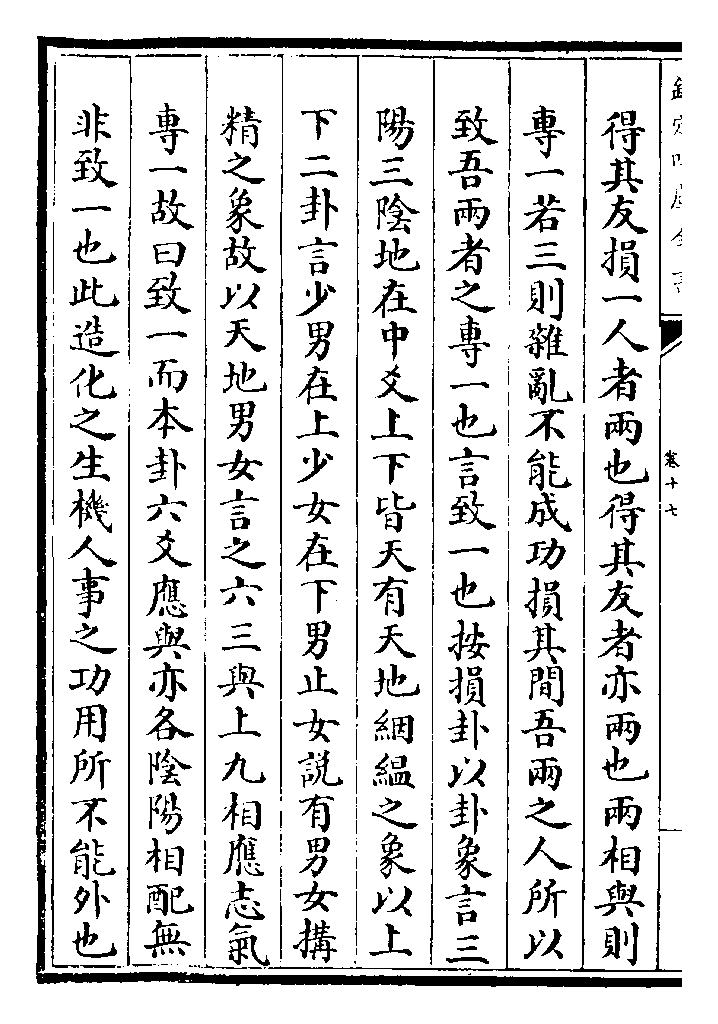 欽定四庫全書
卷十七
得其友損一人者兩也得其友者亦兩也兩相與則
專一若三則雜亂不能成功損其間吾兩之人所以
致吾兩者之專一也言致一也按損卦以卦象言三
陽三陰地在中爻上下皆天有天地絪縕之象以上
下二卦言少男在上少女在下男止女說有男女搆
精之象故以天地男女言之六三與上九相應志氣
專一故曰致一而本卦六爻應與亦各陰陽相配無
非致一也此造化之生機人事之功用所不能外也